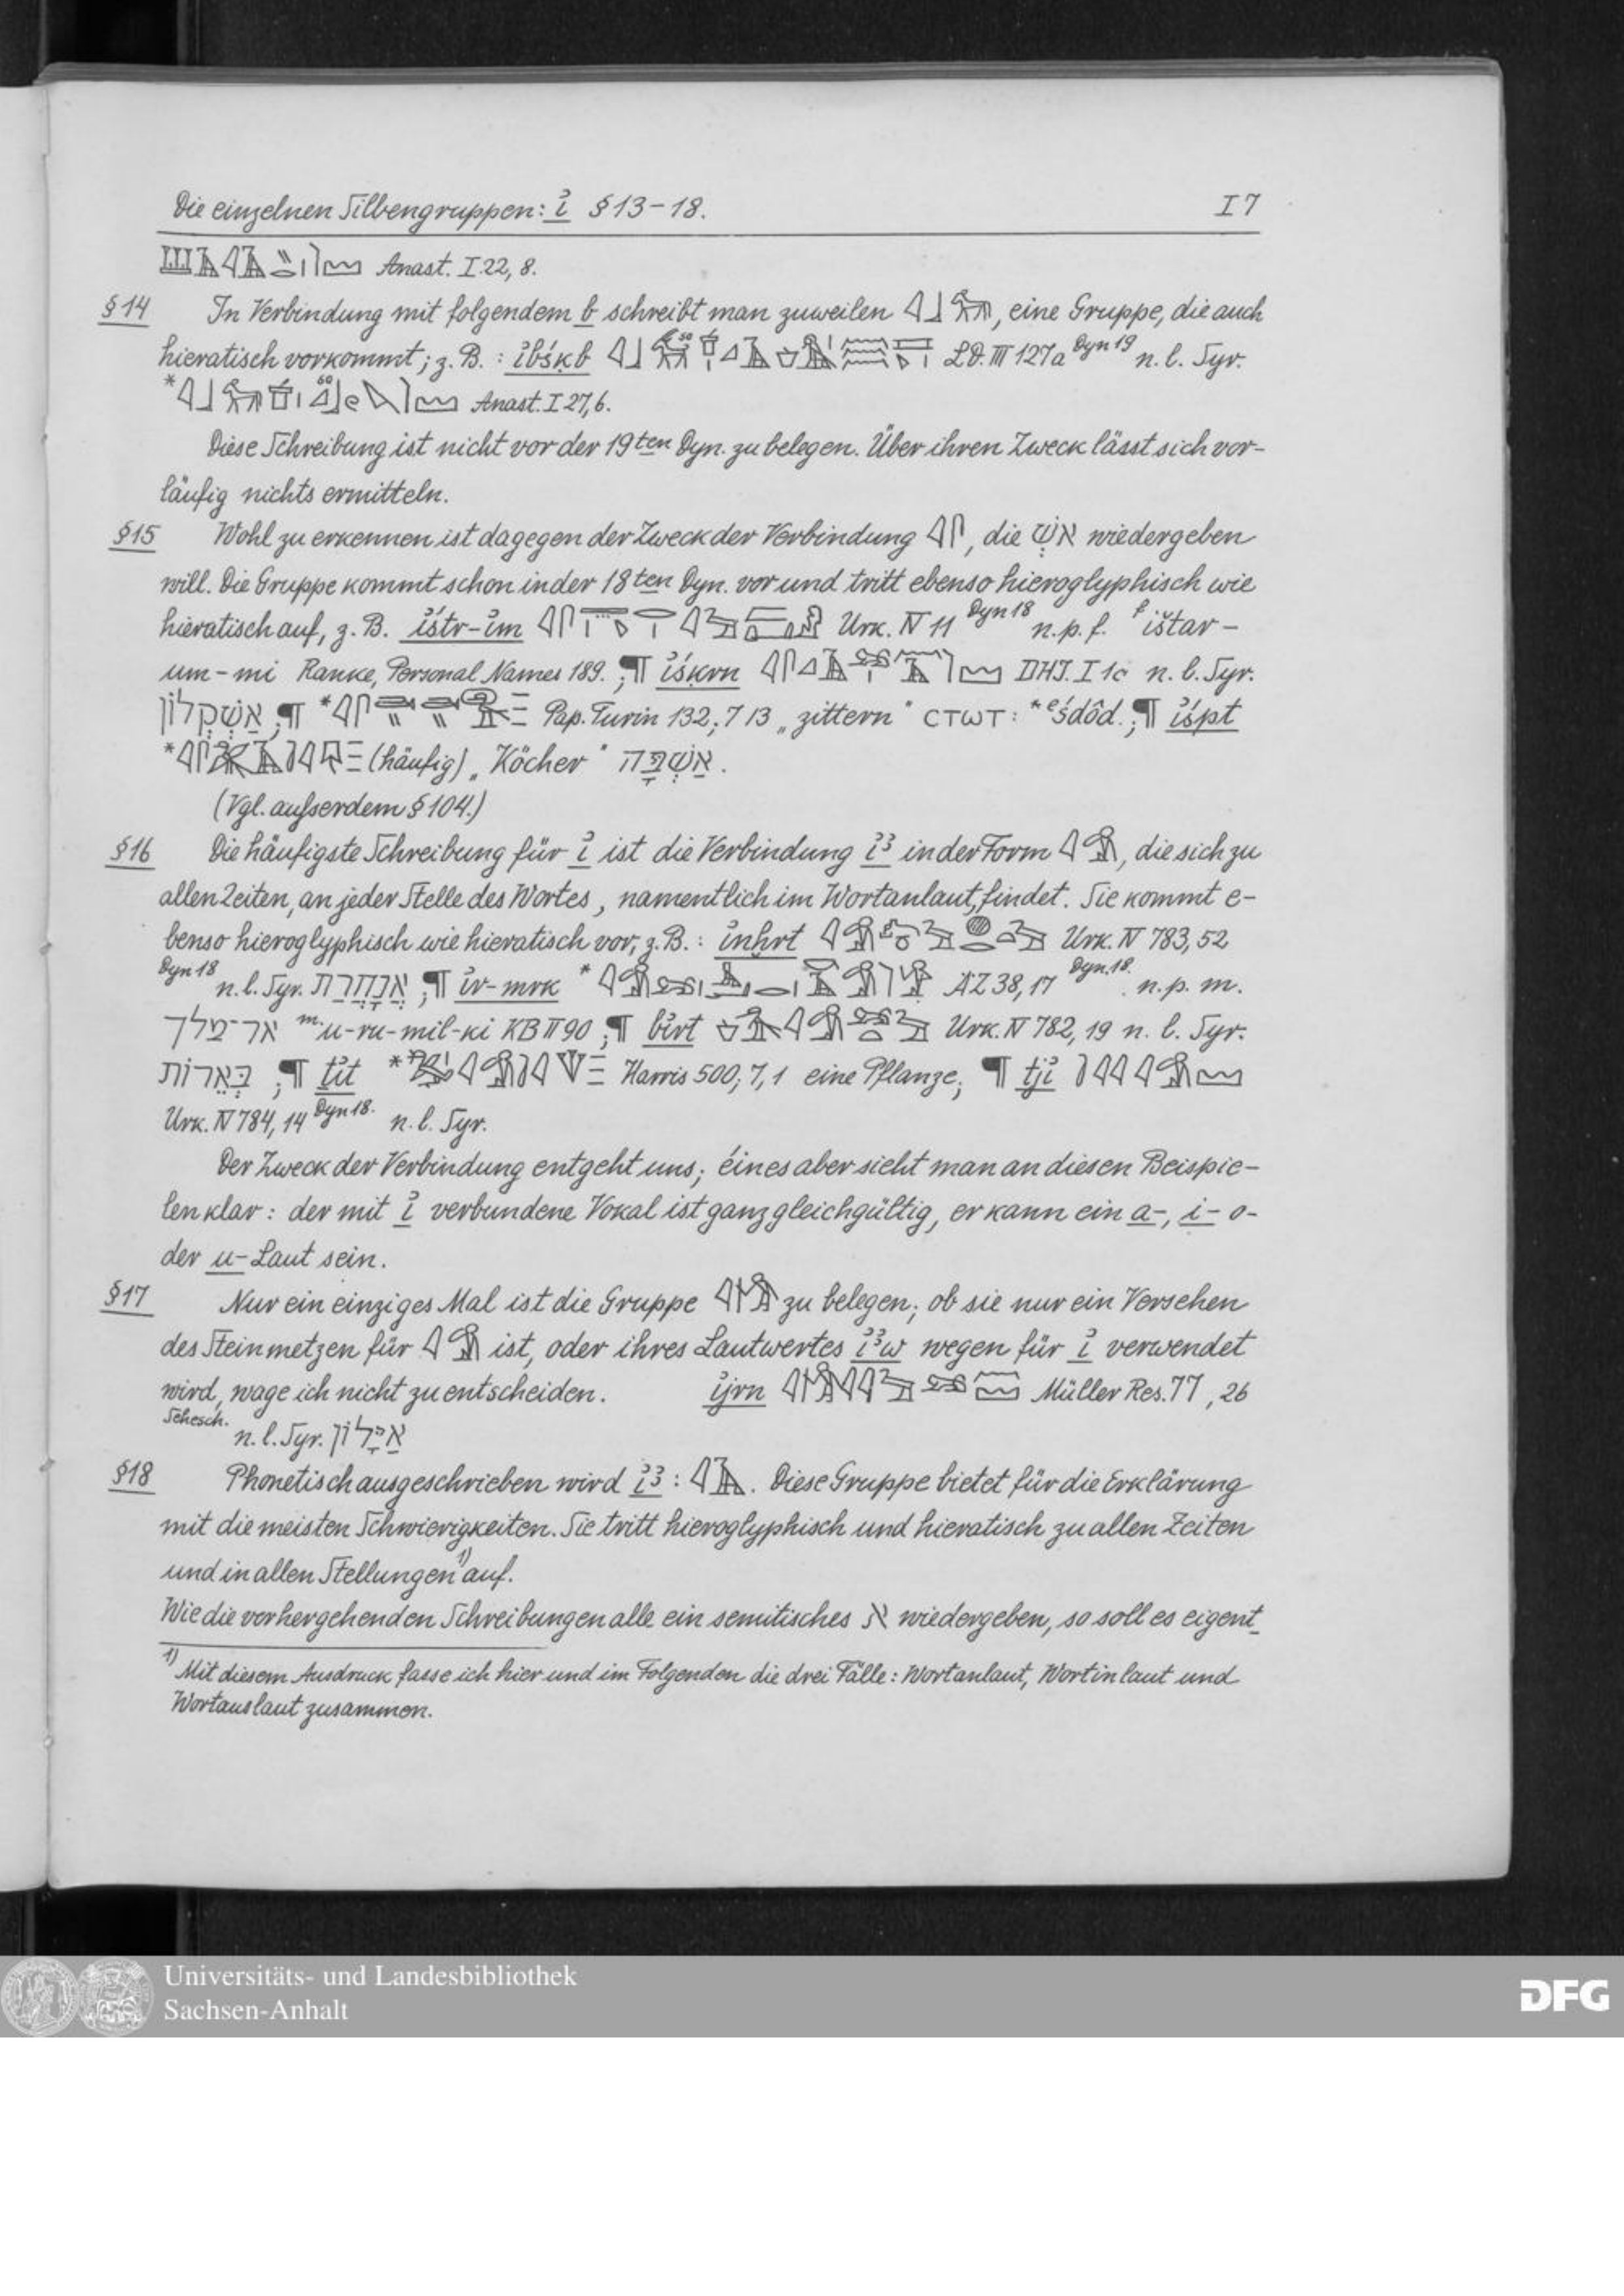 Die einzelnen Silbengruppen: i҆ § 13-18. I 7
Anast. I 22, 8.
§ 14 In Verbindung mit folgendem b schreibt man zuweilen , eine Gruppe, die auch
hieratisch vorkommt; z. B. : i҆bśḳb LD. III 127a Dyn 19 n. l. Syr.
* Anast. I 27, 6.
Diese Schreibung ist nicht vor der 19ten Dyn. zu belegen. Über ihren Zweck lässt sich vor-
läufig nichts ermitteln.
§ 15 Wohl zu erkennen ist dagegen der Zweck der Verbindung , die אשׁ wiedergeben
will. Die Gruppe kommt schon in der 18ten Dyn. vor und tritt ebenso hieroglyphisch wie
hieratisch auf, z. B. i҆śtr-i҆m Urk. IV 11 Dyn 18 n. p. f. f ištar-
um-mi Ranke, Personal Names 189. ; ¶ i҆śḳrn I 1c n. l. Syr.
אַשְׁקְלוֹן ; ¶ * Pap. Turin 132, 7 13 „zittern" ⲥⲧⲱⲧ : *eśdôd. ; ¶ i҆śpt
* (häufig) „Köcher" אַשְׁפָּה .
(Vgl. ausserdem § 104.)
§ 16 Die häufigste Schreibung für i҆ ist die Verbindung i҆ꜣ in der Form , die sich zu
allen Zeiten, an jeder Stelle des Wortes, namentlich im Wortanlaut, findet. Sie kommt e-
benso hieroglyphisch wie hieratisch vor, z. B. : i҆nḫrt Urk. IV 783, 52
Dyn 18 n. l. Syr. אֲנָחֲרַת ; ¶ i҆r-mrk * ÄZ 38, 17 Dyn. 18. n. p. m.
אר־מלך m u-ru-mil-ki KB II 90 ; ¶ bi҆rt Urk. IV 782, 19 n. l. Syr.
בְּאֵרוֹת ; ¶ ti҆t * Harris 500, 7, 1 eine Pflanze; ¶ tji҆
Urk. IV 784, 14 Dyn 18. n. l. Syr.
Der Zweck der Verbindung entgeht uns; éines aber sieht man an diesen Beispie-
len klar: der mit i҆ verbundene Vokal ist ganz gleichgültig, er kann ein a-, i- o-
der u-Laut sein.
§ 17 Nur ein einziges Mal ist die Gruppe zu belegen; ob sie nur ein Versehen
des Steinmetzen für ist, oder ihres Lautwertes i҆ꜣw wegen für i҆ verwendet
wird, wage ich nicht zu entscheiden. i҆jrn Müller Res. 77, 26
Schesch. n. l. Syr. אַיָּלוֹן
§ 18 Phonetisch ausgeschrieben wird i҆ꜣ : . Diese Gruppe bietet für die Erklärung
mit die meisten Schwierigkeiten. Sie tritt hieroglyphisch und hieratisch zu allen Zeiten
und in allen Stellungen 1) auf.
Wie die vorhergehenden Schreibungen alle ein semitisches א wiedergeben, so soll es eigent-
1) Mit diesem Ausdruck fasse ich hier und im Folgenden die drei Fälle: Wortanlaut, Wortinlaut und
Wortauslaut zusammen.
Universitäts- und Landesbibliothek
Sachsen-Anhalt
DFG